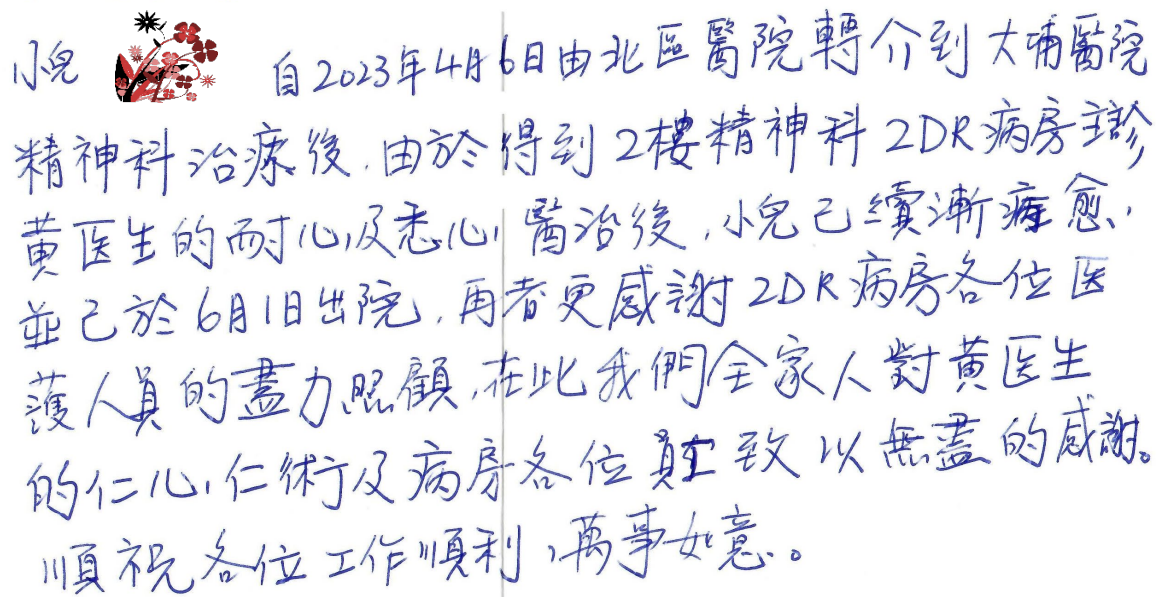 小兒 自2023年4月6日由北區醫院轉介到大埔醫院
精神科治療後，由於得到2樓精神科2DR病房主診
黃医生的耐心及悉心醫治後，小兒已續漸痊愈，
並已於6月1日出院，再者更感謝2DR病房各位医
護人員的盡力照顧，在此我們全家人對黃医生
的仁心，仁術及病房各位員工致以無盡的感謝。
順祝各位工作順利，萬事如意。